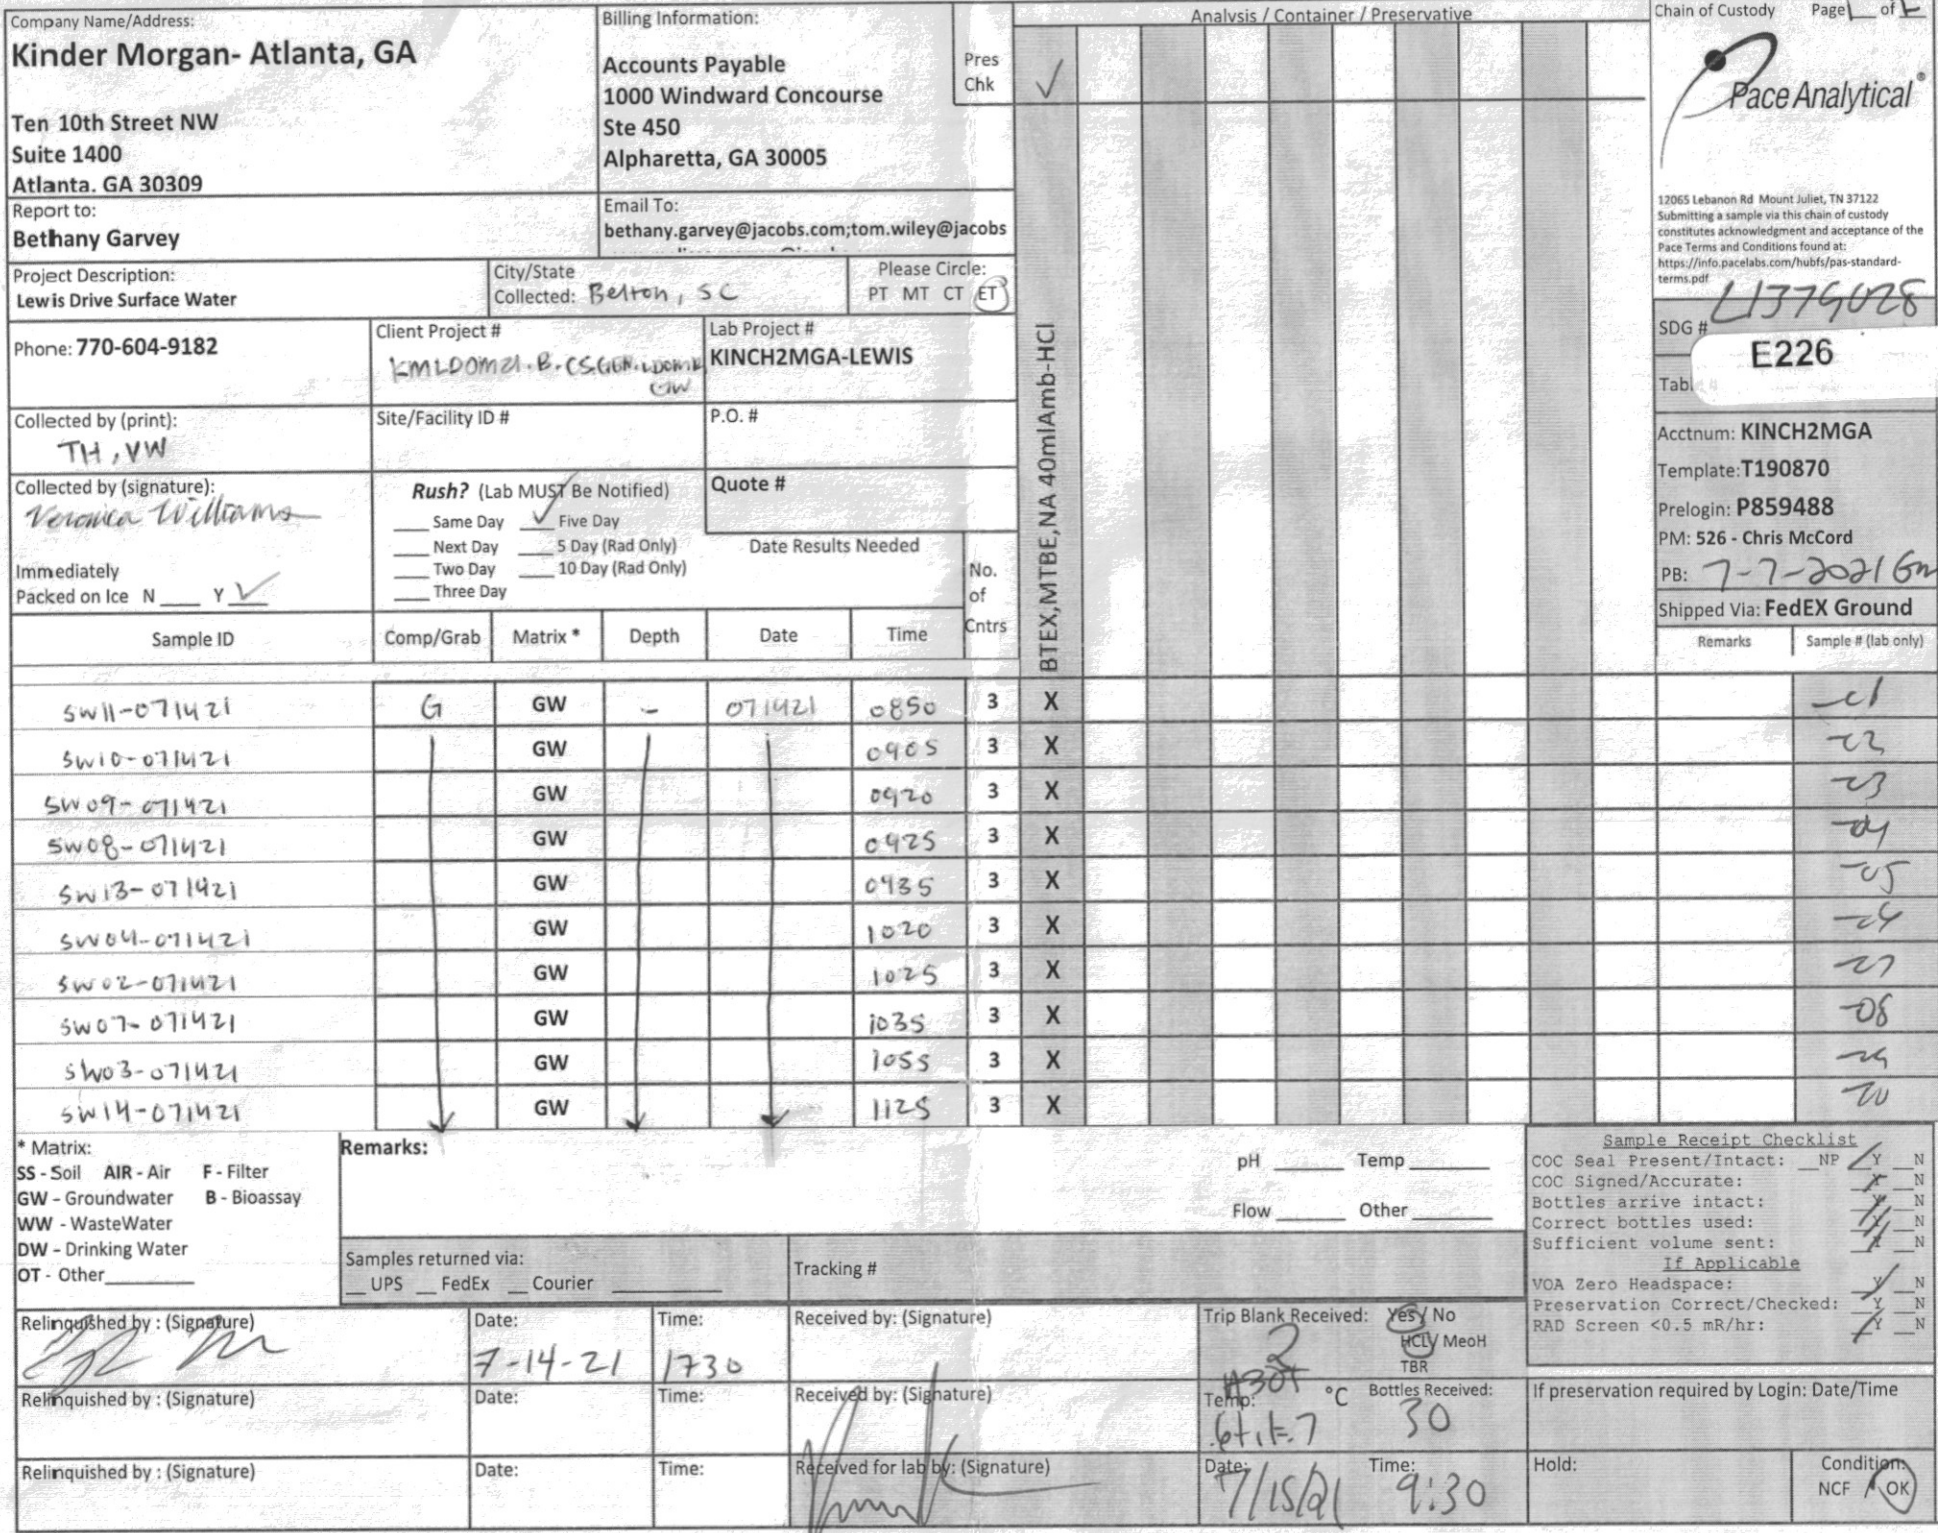 Company Name/Address:
Kinder Morgan- Atlanta, GA
Ten 10th Street NW
Suite 1400
Atlanta. GA 30309
Billing Information:
Accounts Payable
1000 Windward Concourse
Ste 450
Alpharetta, GA 30005
Pres
Chk
✓
Analysis / Container / Preservative
Chain of Custody Page of
Pace Analytical®
12065 Lebanon Rd Mount Juliet, TN 37122
Submitting a sample via this chain of custody
constitutes acknowledgment and acceptance of the
Pace Terms and Conditions found at:
https://info.pacelabs.com/hubfs/pas-standard-
terms.pdf
Report to:
Bethany Garvey
Email To:
bethany.garvey@jacobs.com;tom.wiley@jacobs
Project Description:
Lewis Drive Surface Water
City/State
Collected: Belton, SC
Please Circle:
PT MT CT ET
SDG # L1379028
E226
Phone: 770-604-9182
Client Project #
KMLDOM21.B.CS.GEN.LDOME
GW
Lab Project #
KINCH2MGA-LEWIS
Collected by (print):
TH, VW
Site/Facility ID #
P.O. #
Acctnum: KINCH2MGA
Template: T190870
Prelogin: P859488
PM: 526 - Chris McCord
PB: 7-7-2021 Gm
Shipped Via: FedEX Ground
Collected by (signature):
Veronica Williams
Immediately
Packed on Ice N ___ Y ✓
Rush? (Lab MUST Be Notified)
___ Same Day ✓ Five Day
___ Next Day ___ 5 Day (Rad Only)
___ Two Day ___ 10 Day (Rad Only)
___ Three Day
Quote #
Date Results Needed
No.
of
Cntrs
BTEX,MTBE,NA 40mlAmb-HCl
Sample ID Comp/Grab Matrix * Depth Date Time Remarks Sample # (lab only)
SW11-071421 G GW - 071421 0850 3 X -01
SW10-071421 GW 0905 3 X -02
SW09-071421 GW 0920 3 X -03
SW08-071421 GW 0925 3 X -04
SW13-071421 GW 0935 3 X -05
SW04-071421 GW 1020 3 X -06
SW02-071421 GW 1025 3 X -07
SW07-071421 GW 1035 3 X -08
SW03-071421 GW 1055 3 X -09
SW14-071421 GW 1125 3 X -10
* Matrix:
SS - Soil AIR - Air F - Filter
GW - Groundwater B - Bioassay
WW - WasteWater
DW - Drinking Water
OT - Other
Remarks:
pH ___ Temp ___
Flow ___ Other ___
Samples returned via:
__ UPS __ FedEx __ Courier
Tracking #
Sample Receipt Checklist
COC Seal Present/Intact: __NP Y __N
COC Signed/Accurate: Y __N
Bottles arrive intact: Y __N
Correct bottles used: Y __N
Sufficient volume sent: Y __N
If Applicable
VOA Zero Headspace: Y __N
Preservation Correct/Checked: Y __N
RAD Screen <0.5 mR/hr: Y __N
Relinquished by : (Signature)
Date:
7-14-21
Time:
1730
Received by: (Signature)
Trip Blank Received: Yes / No
2
HCL / MeoH
TBR
Relinquished by : (Signature)
Date:
Time:
Received by: (Signature)
Temp: °C
.6+.1=.7
Bottles Received:
30
If preservation required by Login: Date/Time
Relinquished by : (Signature)
Date:
Time:
Received for lab by: (Signature)
Date:
7/15/21
Time:
9:30
Hold:
Condition:
NCF / OK